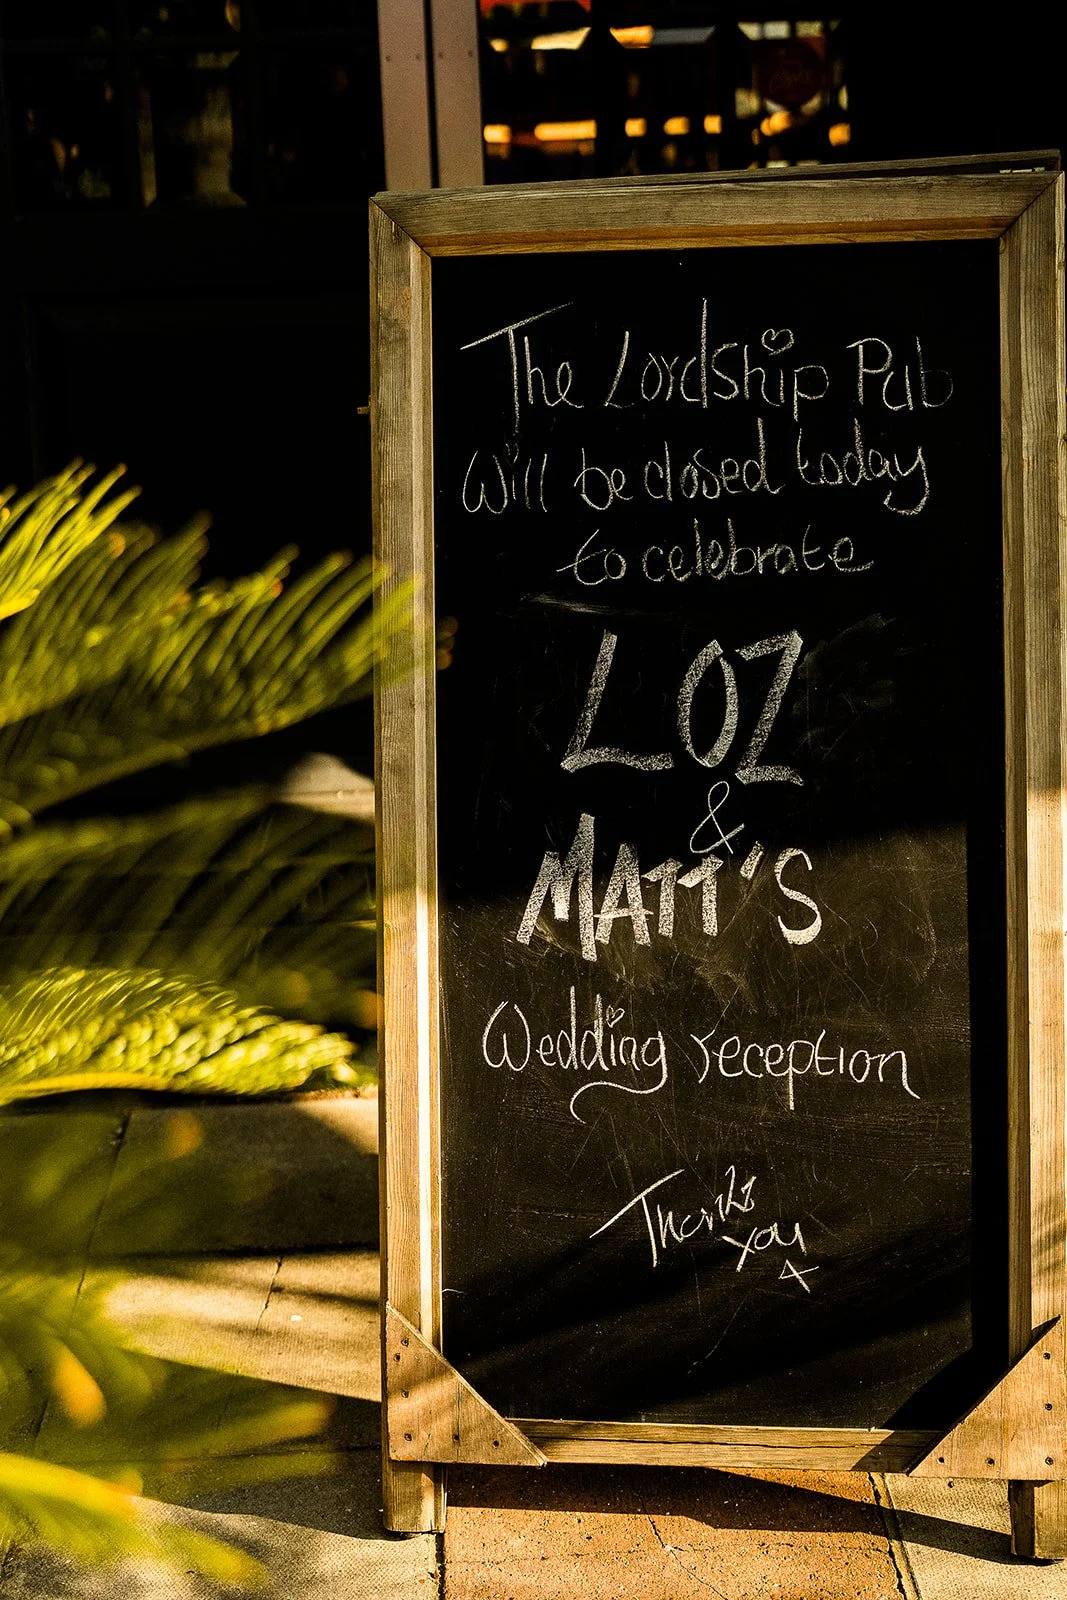 The Lordship Pub
Will be closed today
to celebrate
LOZ
&
MATT'S
Wedding reception
Thanks
you